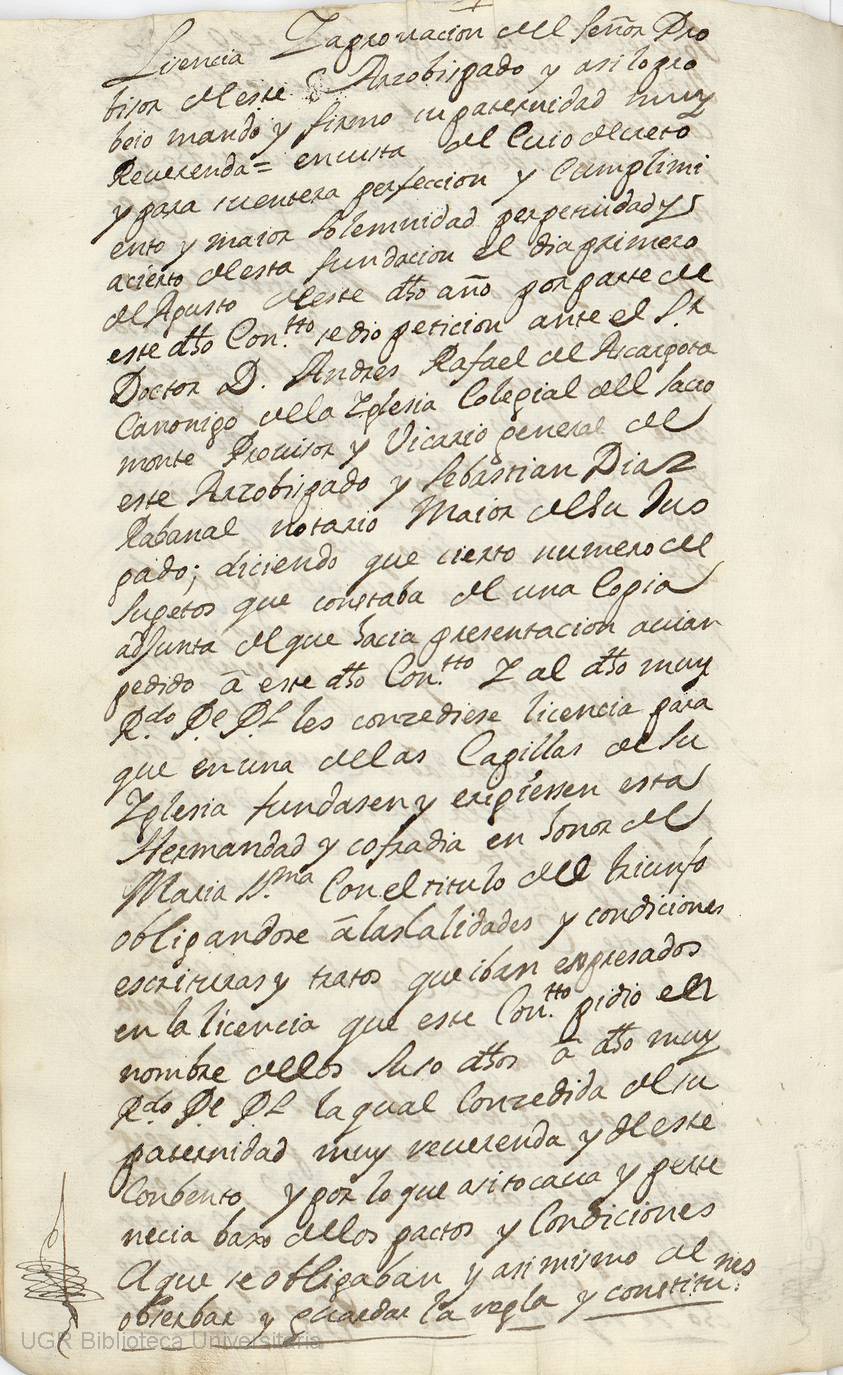 Licencia Y aprouacion del Señor Pro
bisor de este Arzobispado y asi lo pro
beio mando y firmo su paternidad muy
Reuerenda = en uista de Cuio decreto
y para su entera perfeccion y Cumplimi
ento y maior Solemnidad perpetuidad y
acierto de esta fundacion el dia primero
de Agusto de este dho año por parte de
este dho Con.tto se dio peticion ante el S.r
Doctor D. Andres Rafael de Ascargota
Canonigo de la Yglesia Colegial del Sacro
monte Prouisor y Vicario general de
este Arzobispado y Sebastian Diaz
Rabanal notario Maior de Su Jus
gado; diciendo que cierto numero de
Sugetos que constaba de una Copia
adjunta de que hacia presentacion auian
pedido â este dho Con.tto Y al dho muy
R.do P.e P.l les conzediese licencia para
que en una de las Capillas de Su
Yglesia fundasen y erigiessen esta
Hermandad y cofradia en honor de
Maria S.ma Con el titulo del triunfo
obligandose â las Calidades y condiciones
escrituras y tratos que iban expresados
en la licencia que este Con.tto pidio en
nombre de los Suso dhos â dho muy
R.do P.e P.l la qual Conzedida de su
paternidad muy reuerenda y de este
Conbento y por lo que asi tocaua y perte
necia baxo de los pactos y Condiciones
A que se obligaban y asimismo de
obserbar y guardar la regla y constitu.nes
UGR Biblioteca Universitaria